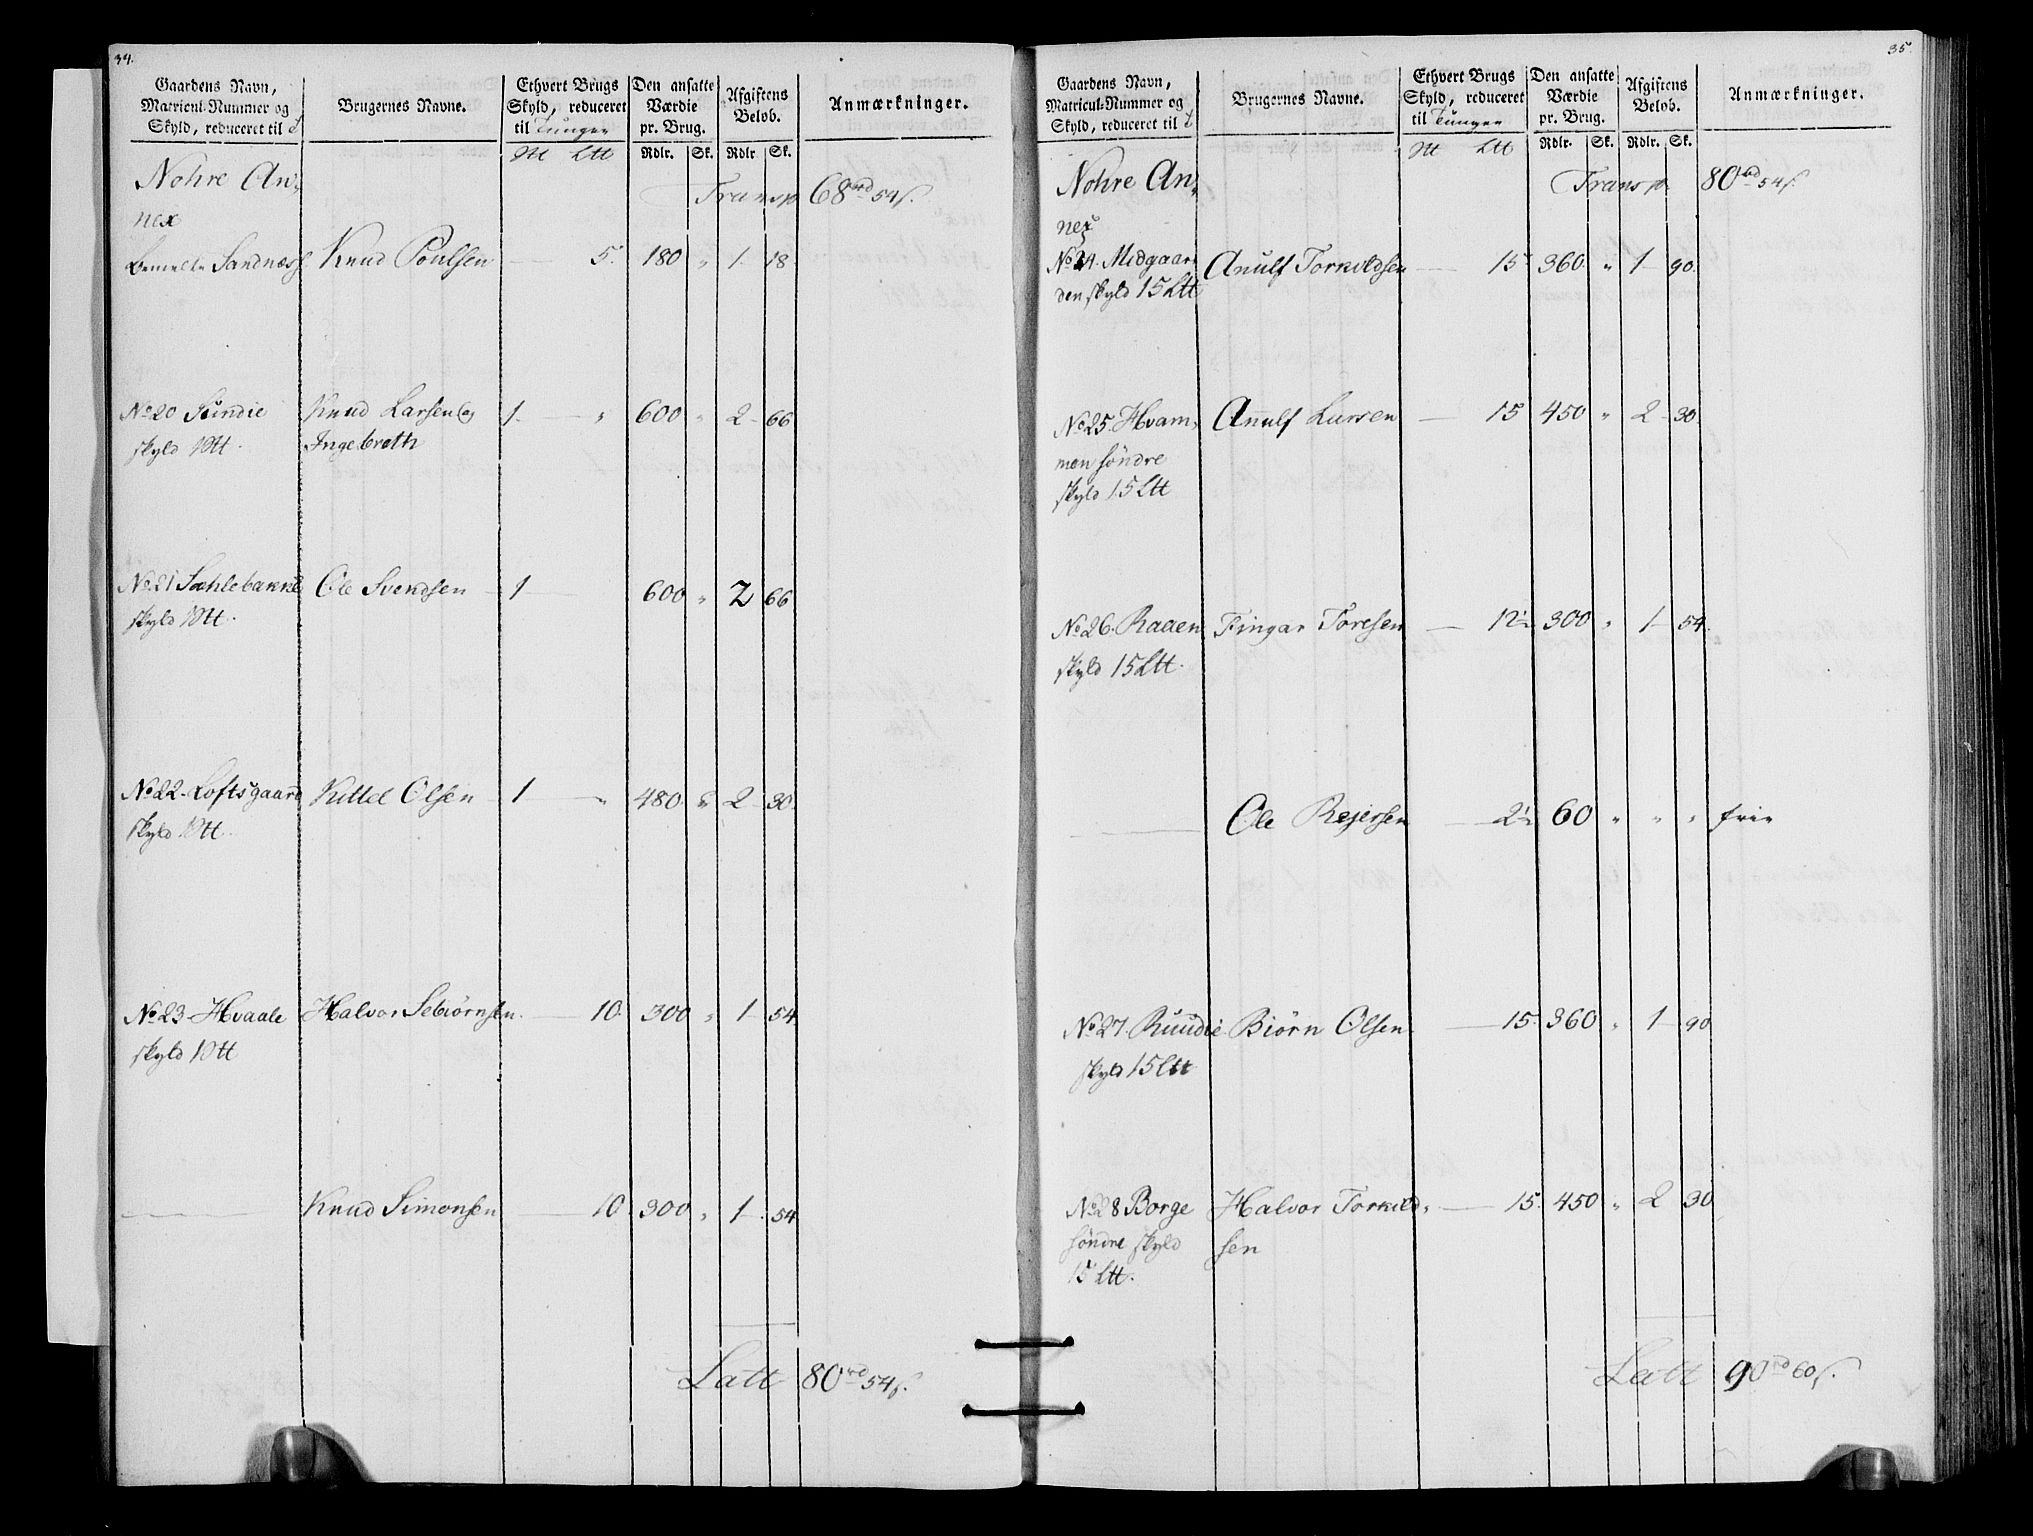 34.
Gaardens Navn, Matricul-Nummer og Skyld, reduceret til
Brugernes Navne.
Ethvert Brugs Skyld, reduceret til Tunger
Den ansatte Værdie pr. Brug.
Afgiftens Beløb.
Anmærkninger.
Rdlr. Sk. Rdlr Sk.
Nohre An-
nex
Transp 68 rd 54 s.
bemelte Sandnæss Knud Poulsen 5. 180 " 1 18
No 20 Sundie Knud Larsen og 1. " 600 " 2 66
skyld 1 tt. Ingebreth
No 21 Sæhlebakke Ole Svendsen 1 600 " 2 66
skyld 1 tt.
No 22 Loftsgaard Kittel Olsen 1 " 480 " 2 30
skyld 1 tt.
No 23 Hvaale Halvor Sebiørnsen. 10. 300 " 1 54
skyld 1 tt
Knud Simonsen 10 300 " 1 54
Latt 80 rd 54 s.
35.
Gaardens Navn, Matricul-Nummer og Skyld, reduceret til
Brugernes Navne.
Ethvert Brugs Skyld, reduceret til Tunger
Den ansatte Værdie pr. Brug.
Afgiftens Beløb.
Anmærkninger.
Rdlr. Sk. Rdlr. Sk.
Nohre An-
nex
Transp. 80 rd 54 s.
No 24. Midgaar- Anulf Torkildsen 15 360 " 1 90.
den skyld 15 Ltt
No 25. Hvam- Anulf Larsen 15 450 " 2 30.
men søndre
skyld 15 Ltt
No 26. Raaen Fingar Toresen 12½ 300 " 1 54.
skyld 15 Ltt.
Ole Rejersen 2½ 60 " " " frie
No 27. Ruudie Biørn Olsen 15. 360 " 1 90
skyld 15 Ltt
No 28 Borge Halvor Torkild- 15. 450 " 2 30
søndre skyld sen
15 Ltt.
Latt 90 rd 60 s.